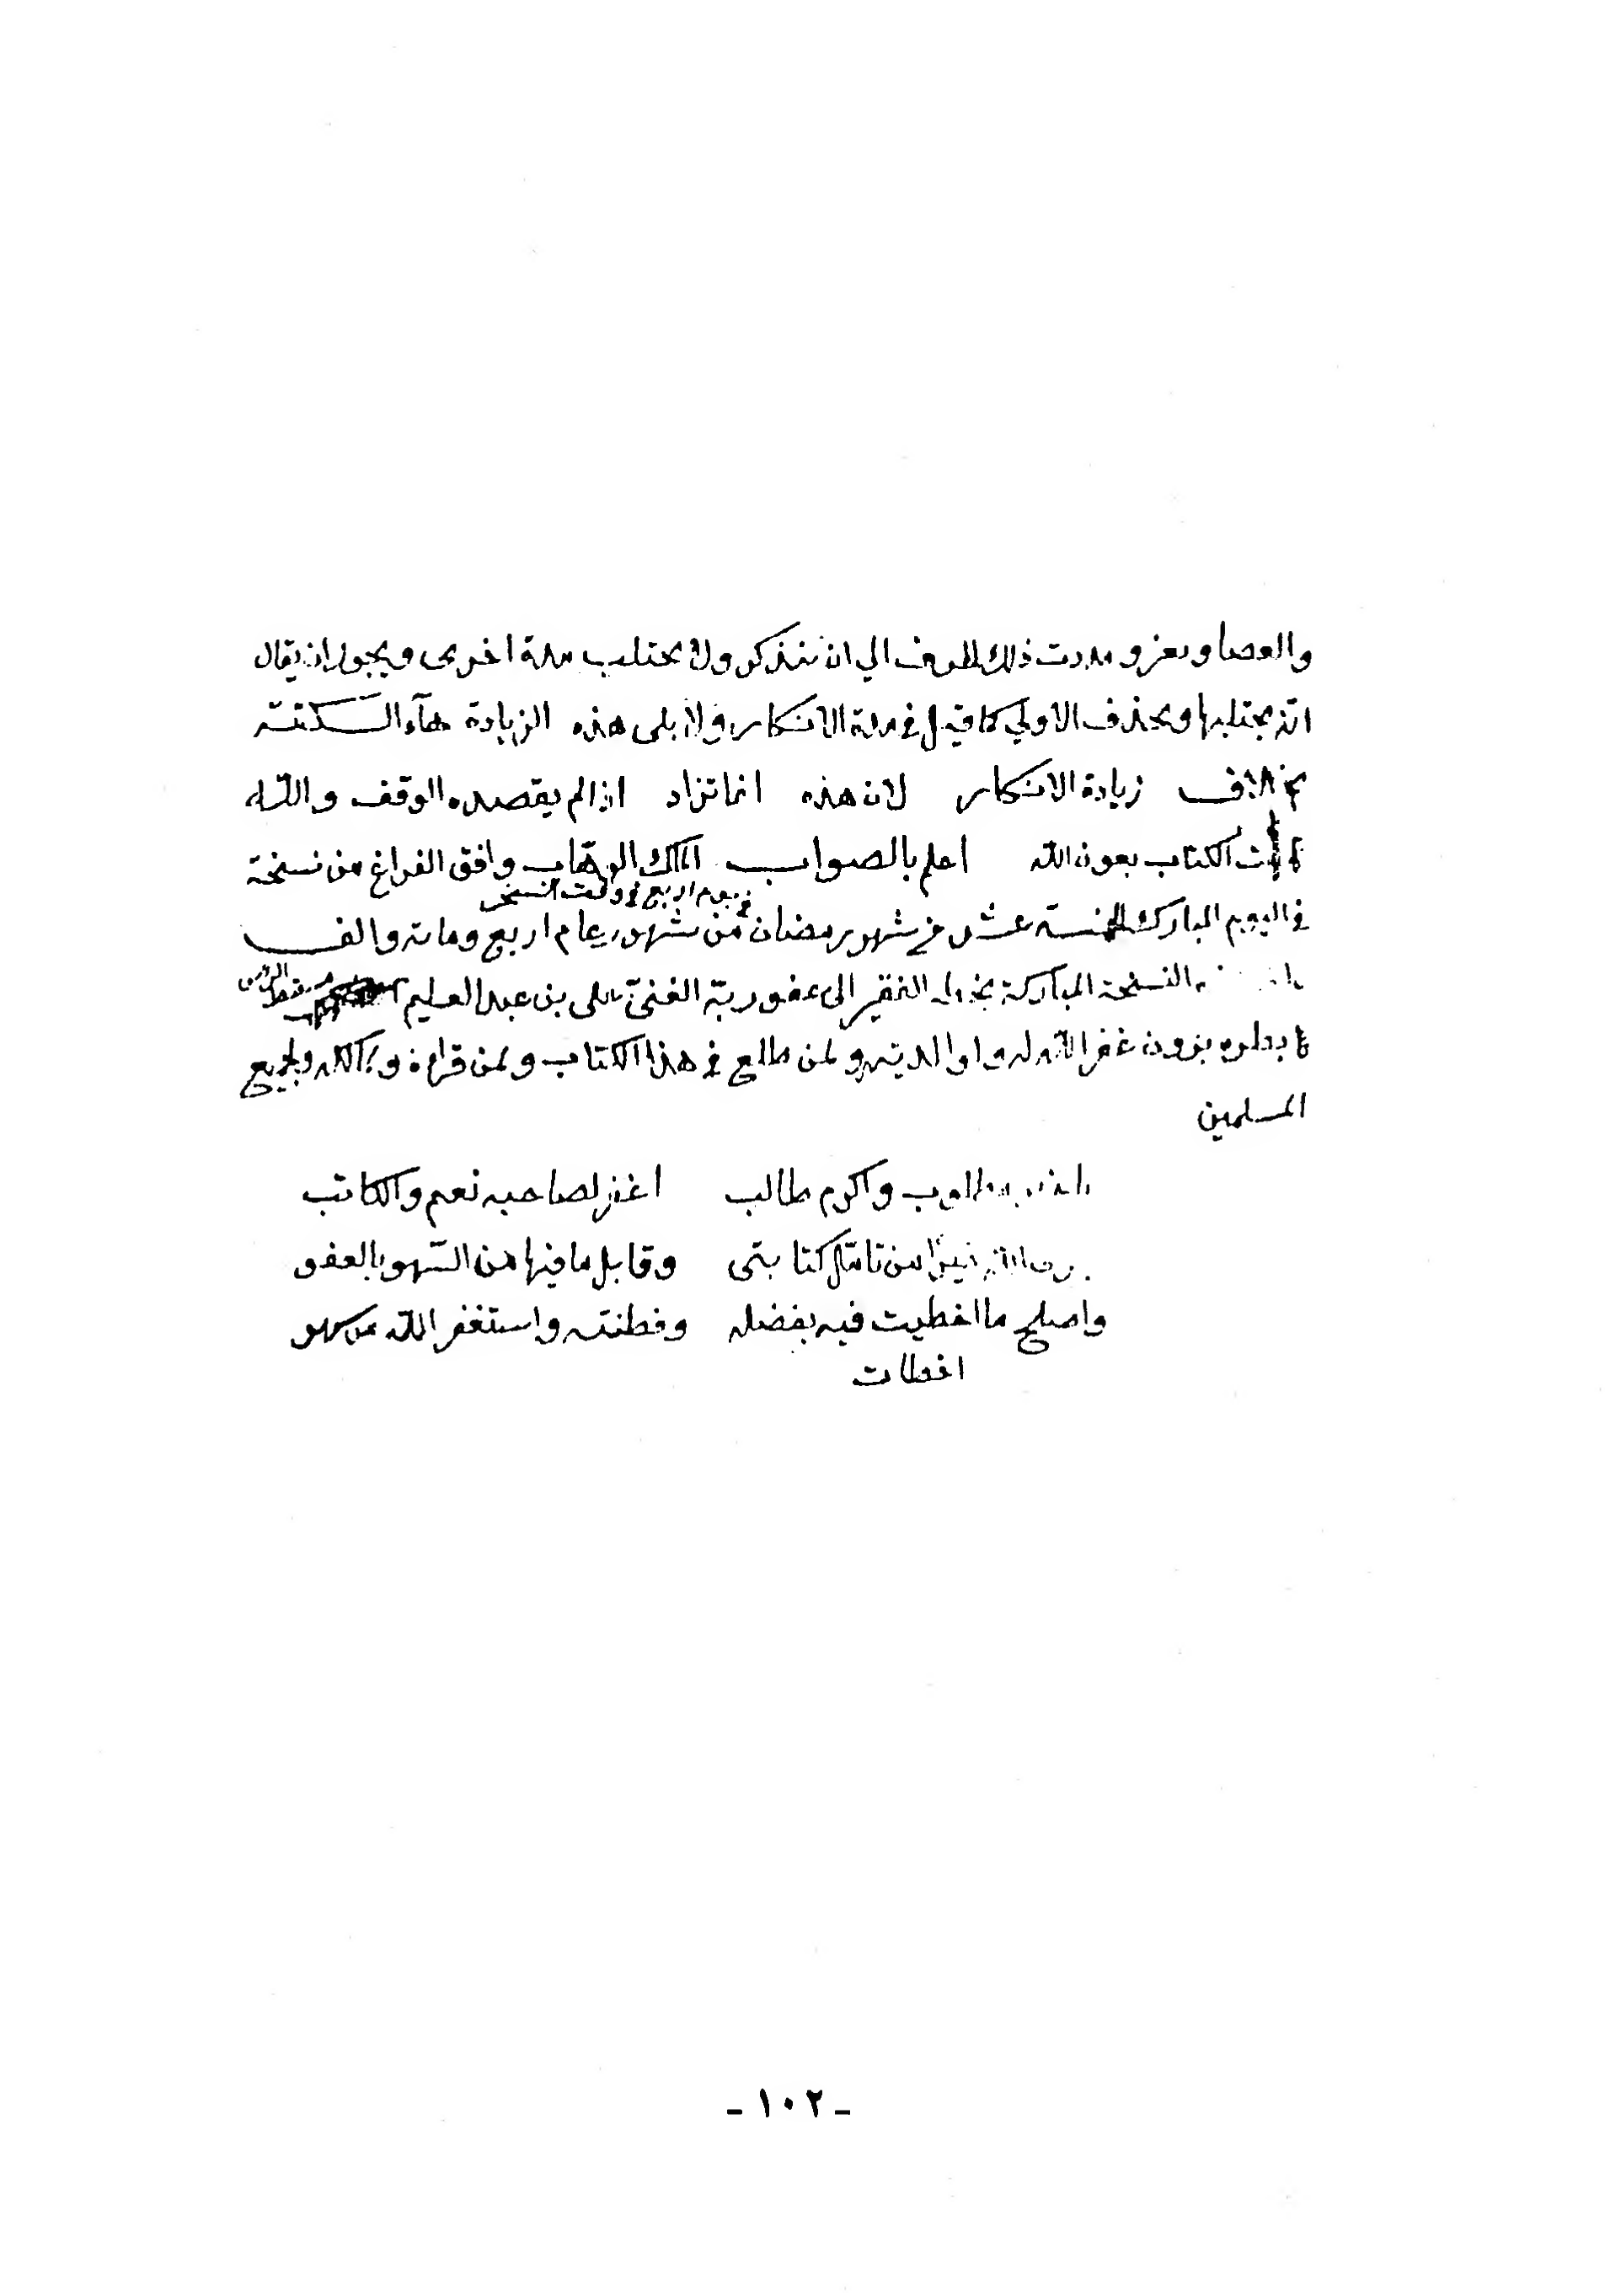 والعصا ويغزو مددت ذلك الحرف الي ان تتذكر ولا يجتلب مدة اخرى ويجوز ان يقال
انّه يجتلبها ويحذف الاولي كما قيل في مدة الانكار ولا يلى هذه الزيادة هآء السّكتته
بخلاف زيادة الانكار لان هذه انما تزاد اذا لم يقصده الوقف واللّه
تمت الكتاب بعون اللّه اعلم بالصواب الملك الوهّاب وافق الفراغ من نسخة
في يوم الربع في وقت
في اليوم المبارك الخمسة عشر في شهر رمضان من شهور عام اربع ومائة والف
النسخة المباركة الفقير الى عفو ربّه الغنىّ على بن عبد العليم
غفر اللّه له ولوالديه ولمن طلع في هذا الكتاب ولمن قراءه ولجميع
المسلمين
مطلوب واكرم طالب اغفر لصاحبه نعم والكاتب
خيرًا من تامّل كتابتى وقابل ما فيها من السّهو بالعفو
واصلح ما اخطيت فيه بفضله وفطنته واستغفر اللّه من سهو
اخطات
- ١٠٢ -